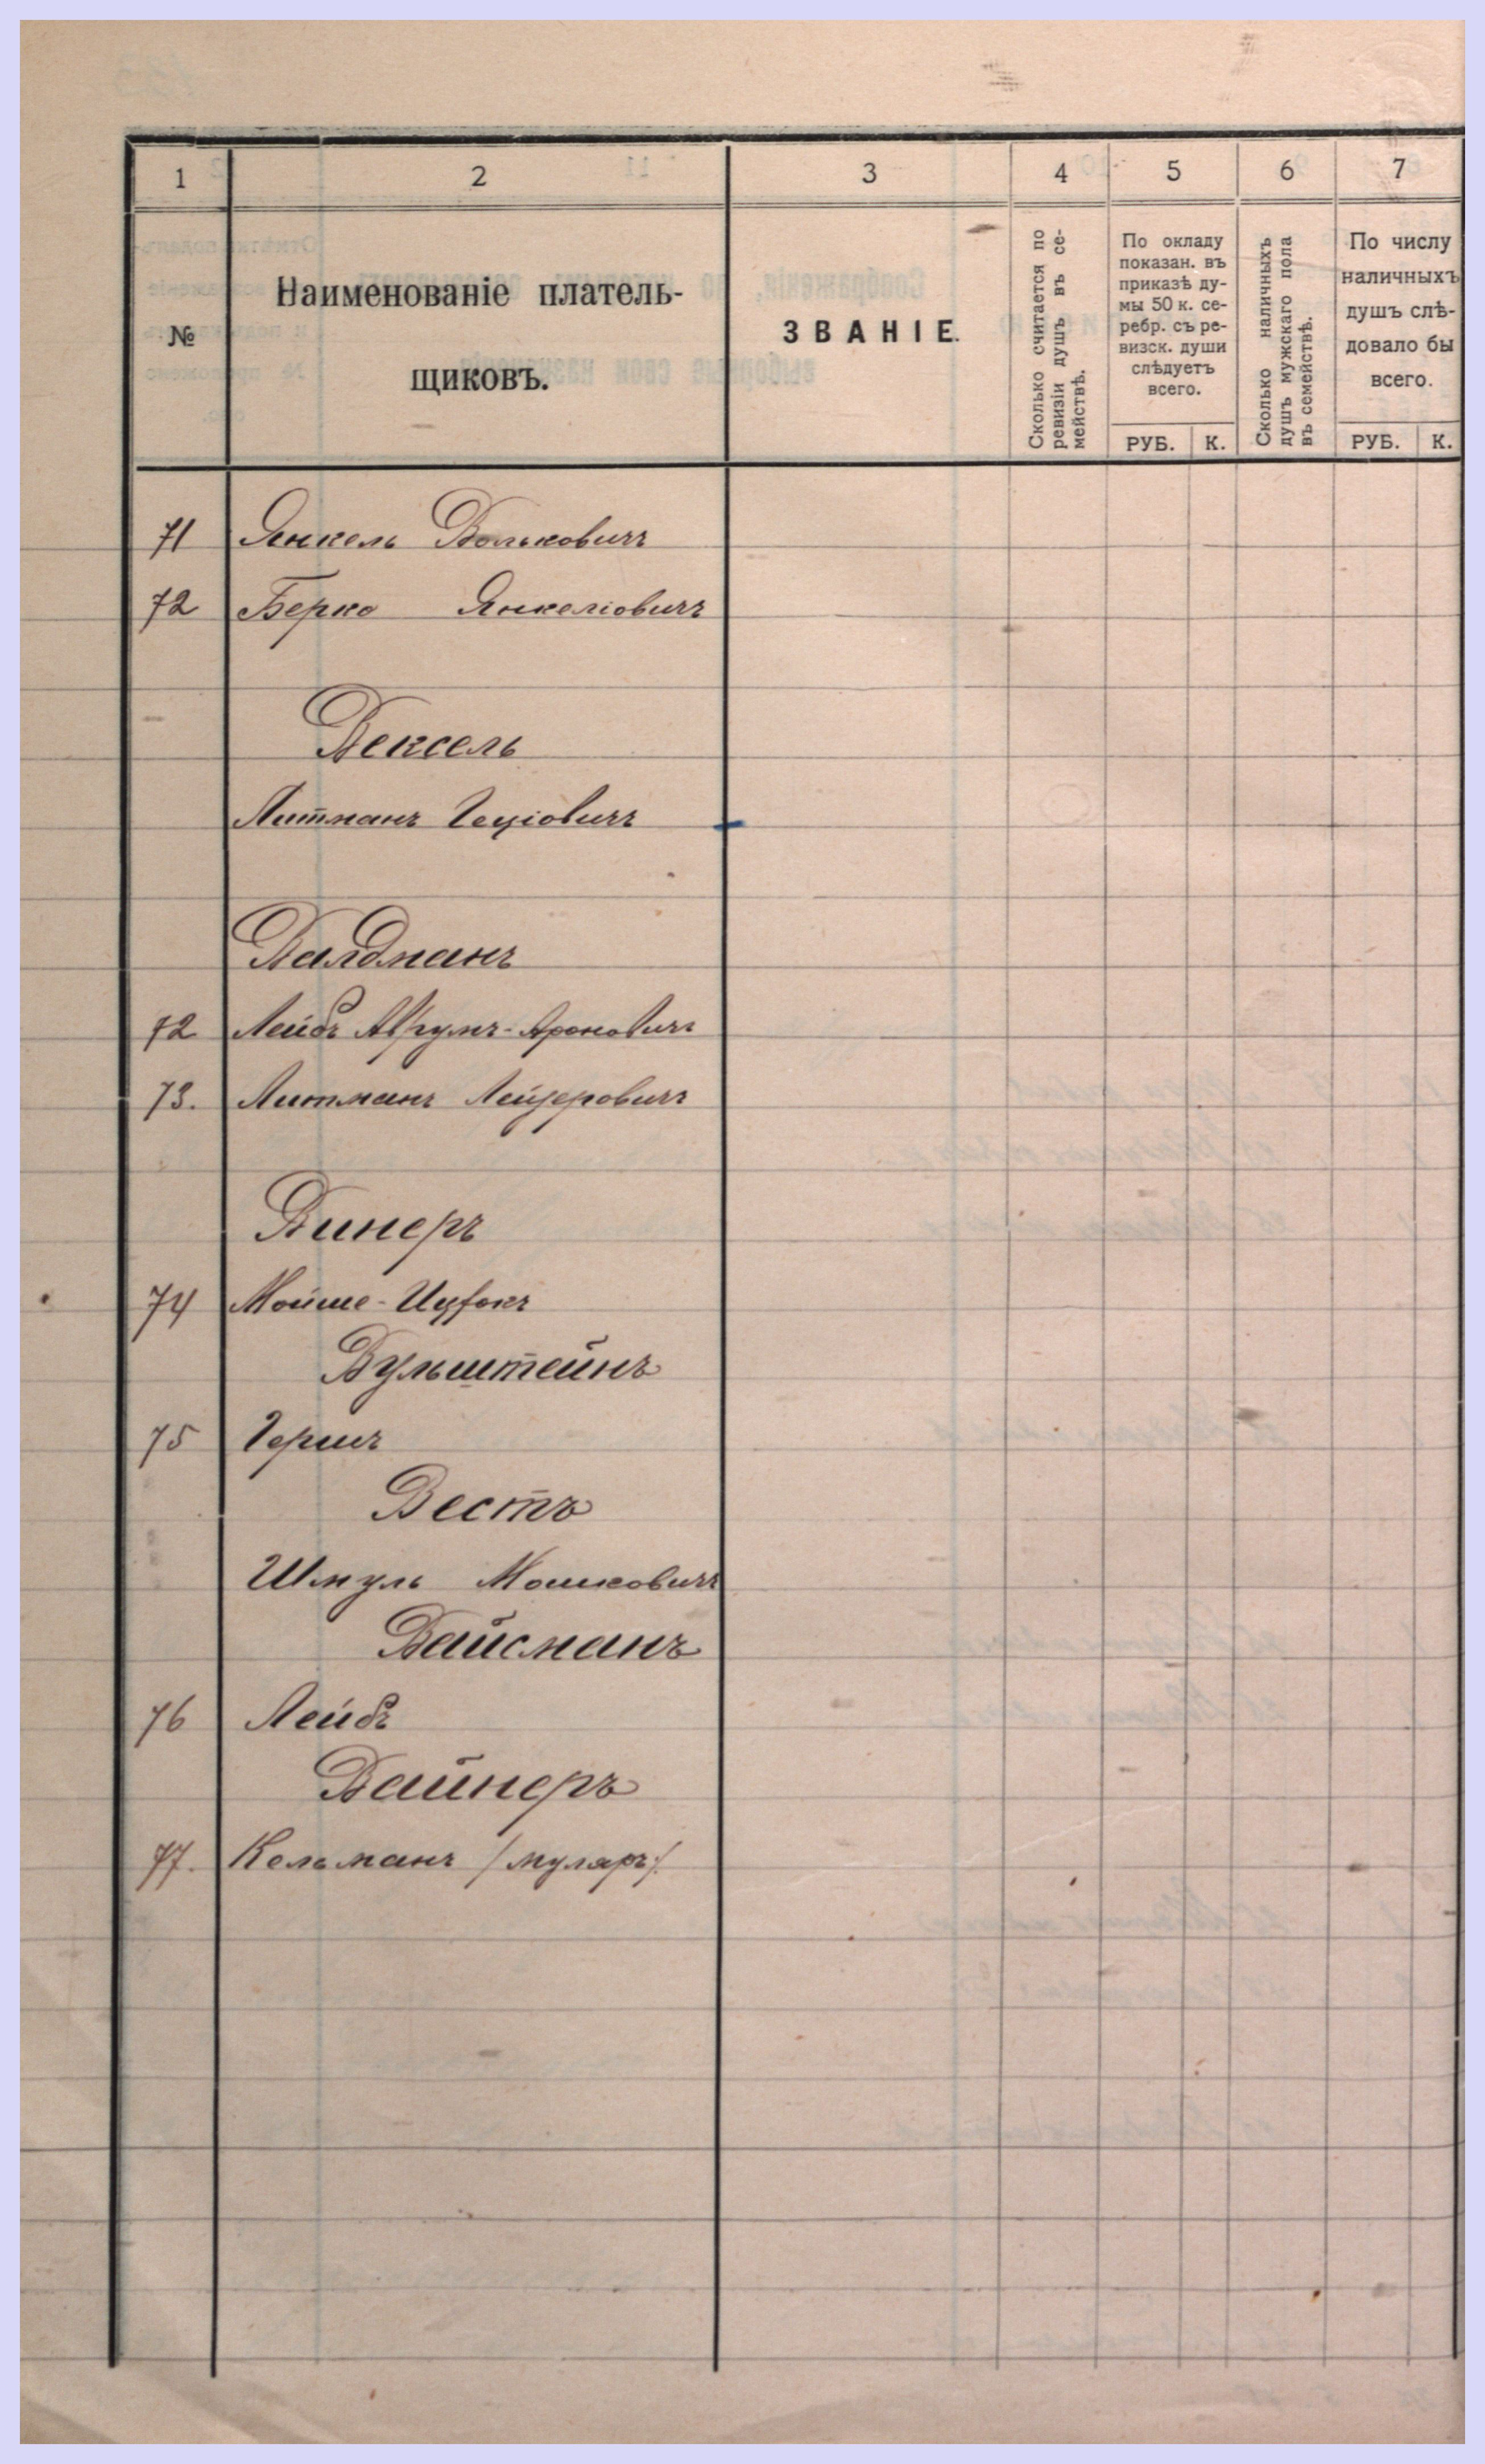 1 2 3 4 5 6 7
№
Наименованіе платель-
щиковъ.
ЗВАНІЕ.
Сколько считается по
ревизіи душъ въ се-
мействѣ.
По окладу
показан. въ
приказѣ ду-
мы 50 к. се-
ребр. съ ре-
визск. души
слѣдуетъ
всего.
РУБ. К.
Сколько наличныхъ
душъ мужскаго пола
въ семействѣ.
По числу
наличныхъ
душъ слѣ-
довало бы
всего.
РУБ. К.
71 Янкель Вольковичъ
72 Берко Янкеліовичъ
Вексель
Литманъ Геціовичъ
Валдманъ
72 Лейбъ Аврумъ-Ароновичъ
73. Литманъ Лейзеровичъ
Винеръ
74 Мойше-Ицхокъ
Вульштейнъ
75 Гершъ
Вестъ
Шмуль Мошковичъ
Вайсманъ
76 Лейбъ
Вайнеръ
77. Кельманъ /муляръ/.